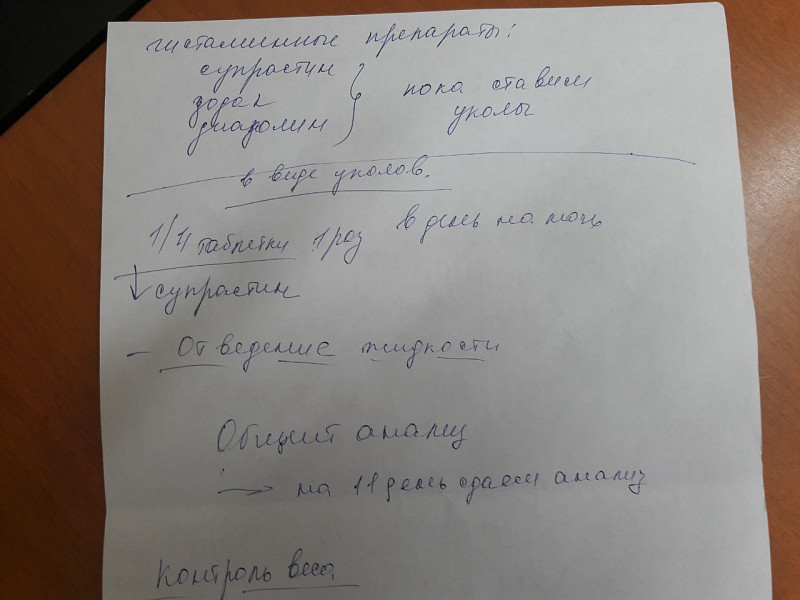 гистаминные препараты:
супрастин
зодак
диазолин
пока ставим
уколы
в виде уколов.
1/4 таблетки 1 раз в день на ночь
супрастин
- Отведение жидкости
Общий анализ
→ на 11 день сдаем анализ
Контроль веса